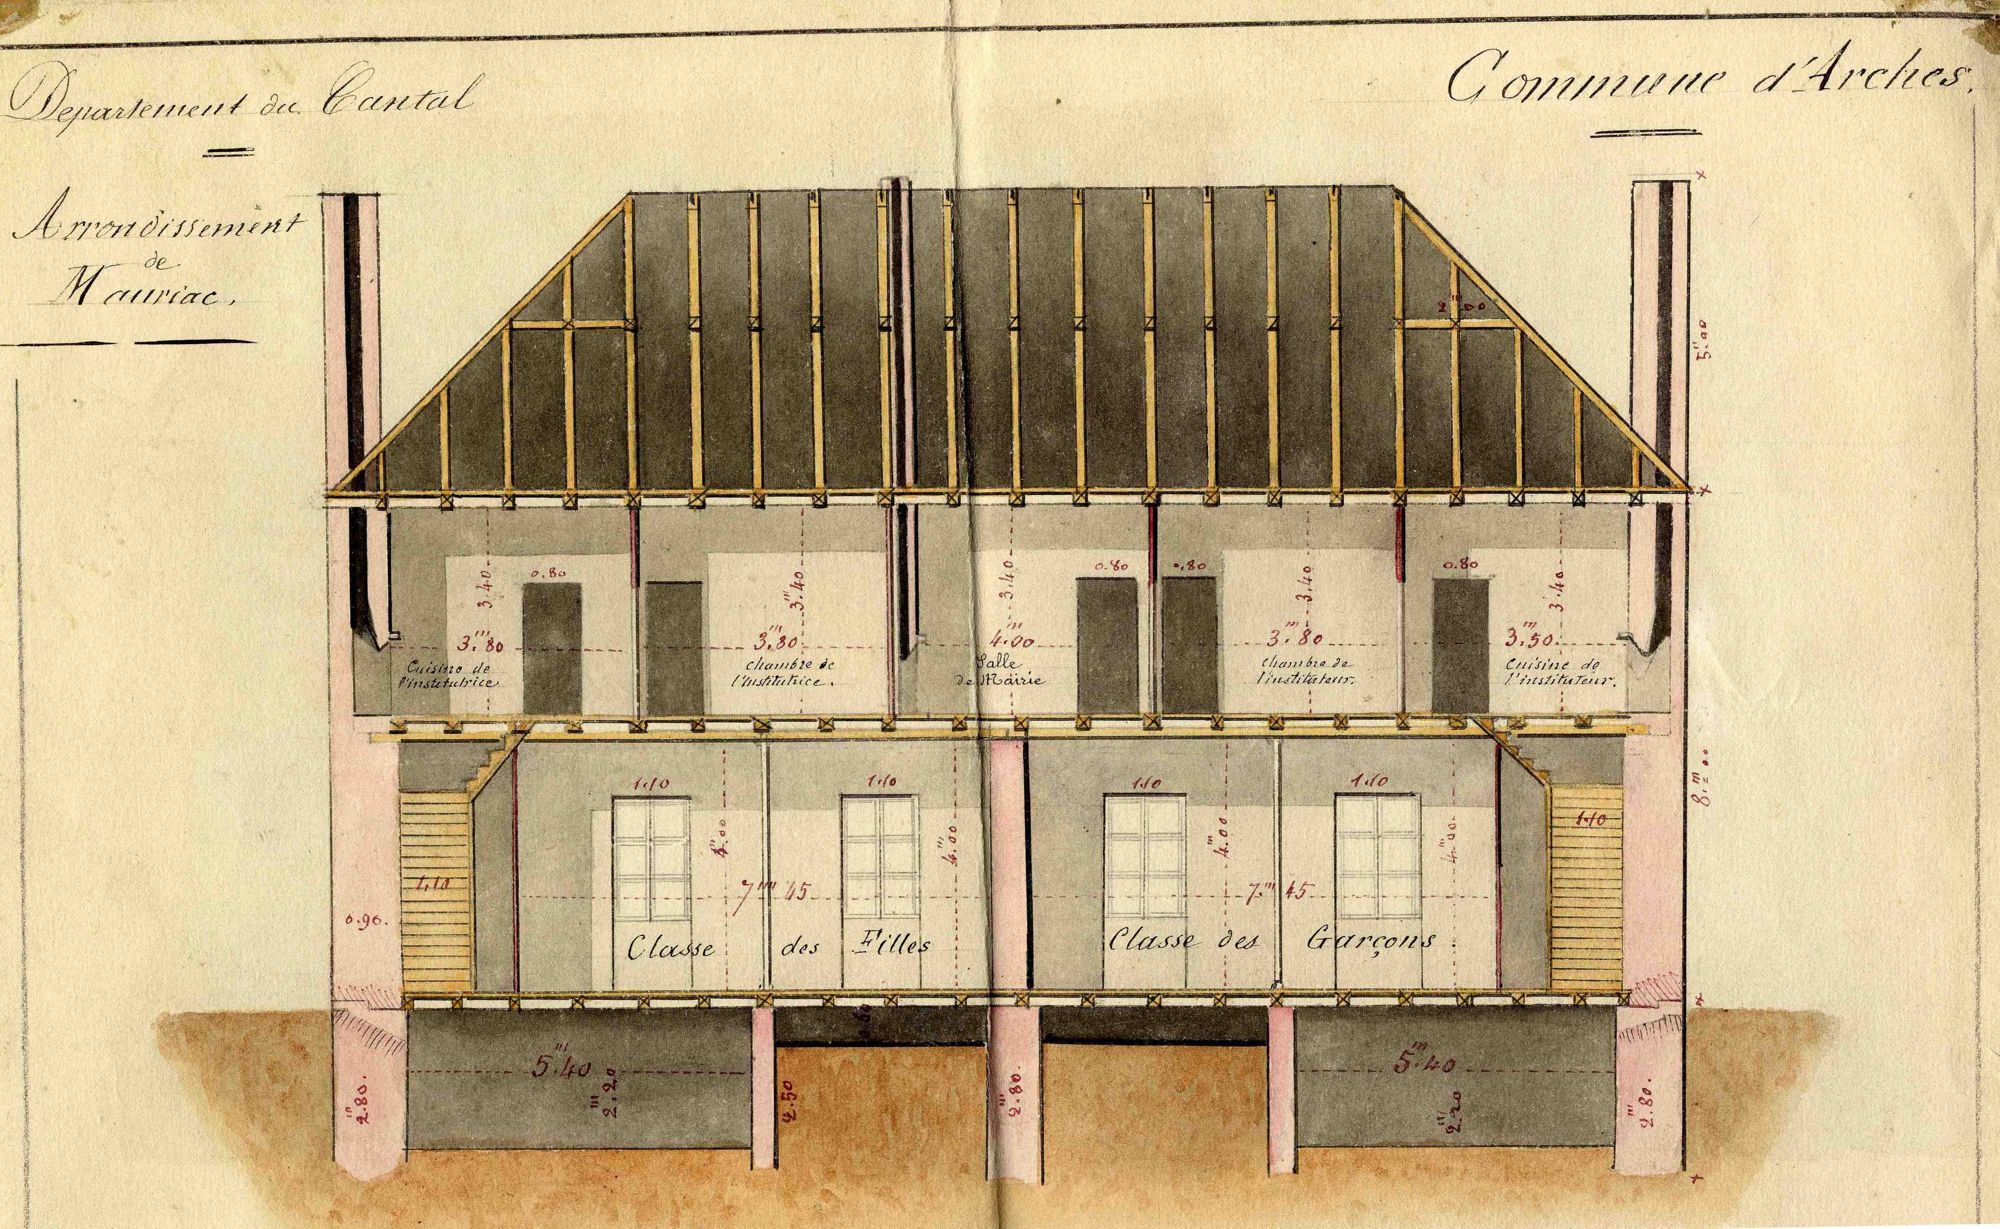 Departement du Cantal
Commune d'Arches.
Arrondissement
de
Mauriac.
2.m00
5.m00
0.80
0.80
0.80
0.80
3.40
3.m40
3.40
3.40
3.40
3.m80
3.m80
4.m00
3.m80
3.m50
Cuisine de
l'institutrice
chambre de
l'institutrice.
Salle
de Mairie
chambre de
l'instituteur.
Cuisine de
l'instituteur.
8.m00
1.10
1.10
1.10
1.10
1.10
1.10
4.m00
4.m00
4.m00
4.m00
7.m45
7.m45
0.90.
Classe des Filles
Classe des Garçons.
5.m40
5.m40
2.m80.
2.m20
2.50
2.m80.
2.m20
2.m80.